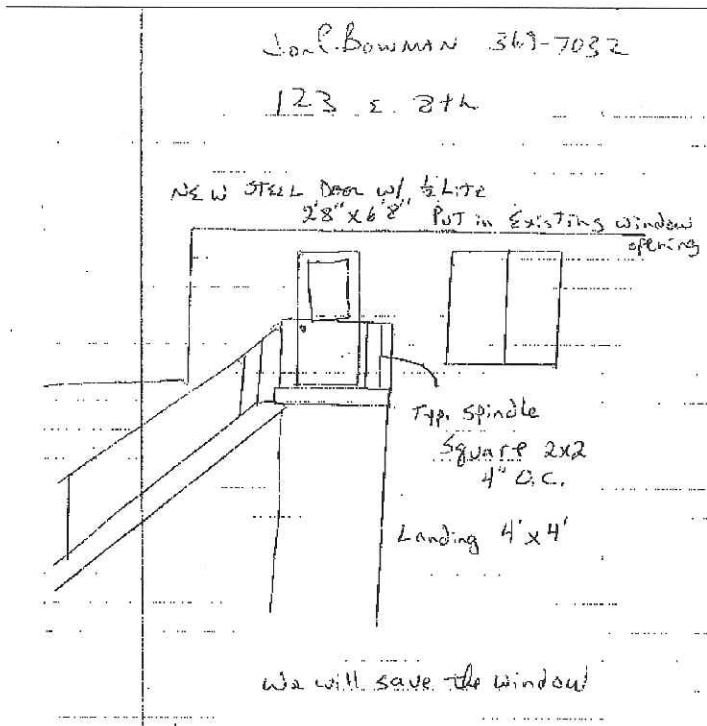 Jon C. BOWMAN 369-7032
123 E. 8th
NEW STEEL DOOR w/ ½ LITE
2'8" x 6'8" PUT in Existing window
opening
Typ. Spindle
Square 2x2
4" O.C.
Landing 4' x 4'
We will save the window